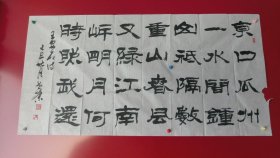 京口瓜州
一水間鍾
山祗隔數
重山春風
又綠江南
岸明月何
時照我還